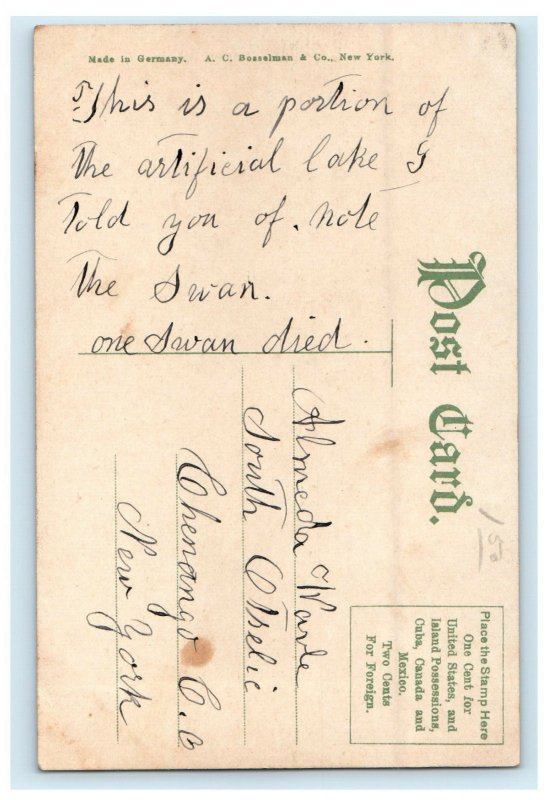 Made in Germany. A. C. Bosselman & Co., New York.
This is a portion of
the artificial lake I
told you of. note
the swan.
one swan died.
Post Card.
Almeda Warde
South Otselic
Chenango C.o
New York
1 50
Place the Stamp Here
One Cent for
United States, and
Island Possessions,
Cuba, Canada and
Mexico.
Two Cents
For Foreign.